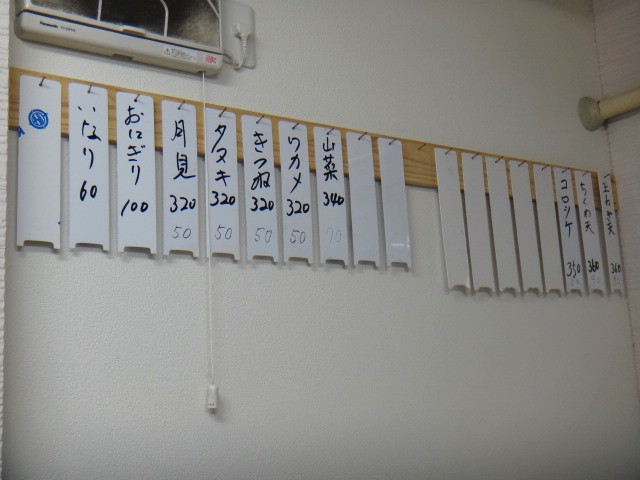 Panasonic
いなり
60
おにぎり
100
月見
320
50
タヌキ
320
50
きつね
320
50
ワカメ
320
50
山菜
340
70
コロッケ
350
ちくわ天
360
玉ねぎ天
360